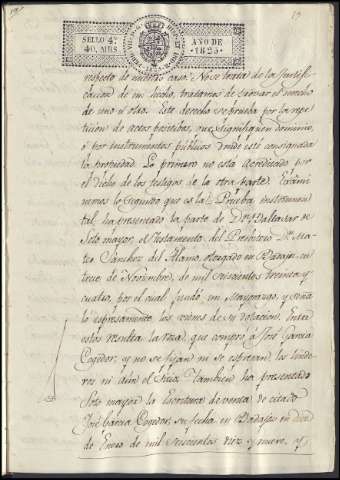 SELLO 4º
40. MRS
AÑO DE
1825
respecto de nuestro caso. No se trata de la justifi-
cacion de un hecho, tratamos de saber el derecho
de uno ú otro. Este derecho se prueba por la repe-
ticion de actos positibos, que signifiquen dominio,
ó por instrumentos publicos donde esté consignada
la propiedad. Lo primero no esta acreditado por
el dicho de los testigos de la otra parte. Exami-
nemos lo segundo que es la Prueba instrumen-
tal, ha presentado la parte de Dn Baltasar de
Soto mayor, el Testamento del Presbitero Dn Ma-
teo Sanchez del Alamo, otorgado en Badajoz en
trece de Noviembre, de mil seiscientos treinta y
cuatro, por el cual fundó un Mayorazgo, y señala
lo espresamente los vienes de su dotacion. Entre
estos resulta la roza, que compró á José Garcia
Cogedor; y no se fijan ni se espresan los linde-
ros ni aun el Sitio. Tambien ha presentado
Soto mayor la Escritura de venta de citado
José Garcia Cogedor, su fecha en Badajoz en doce
de Enero de mil seiscientos diez y nueve, y